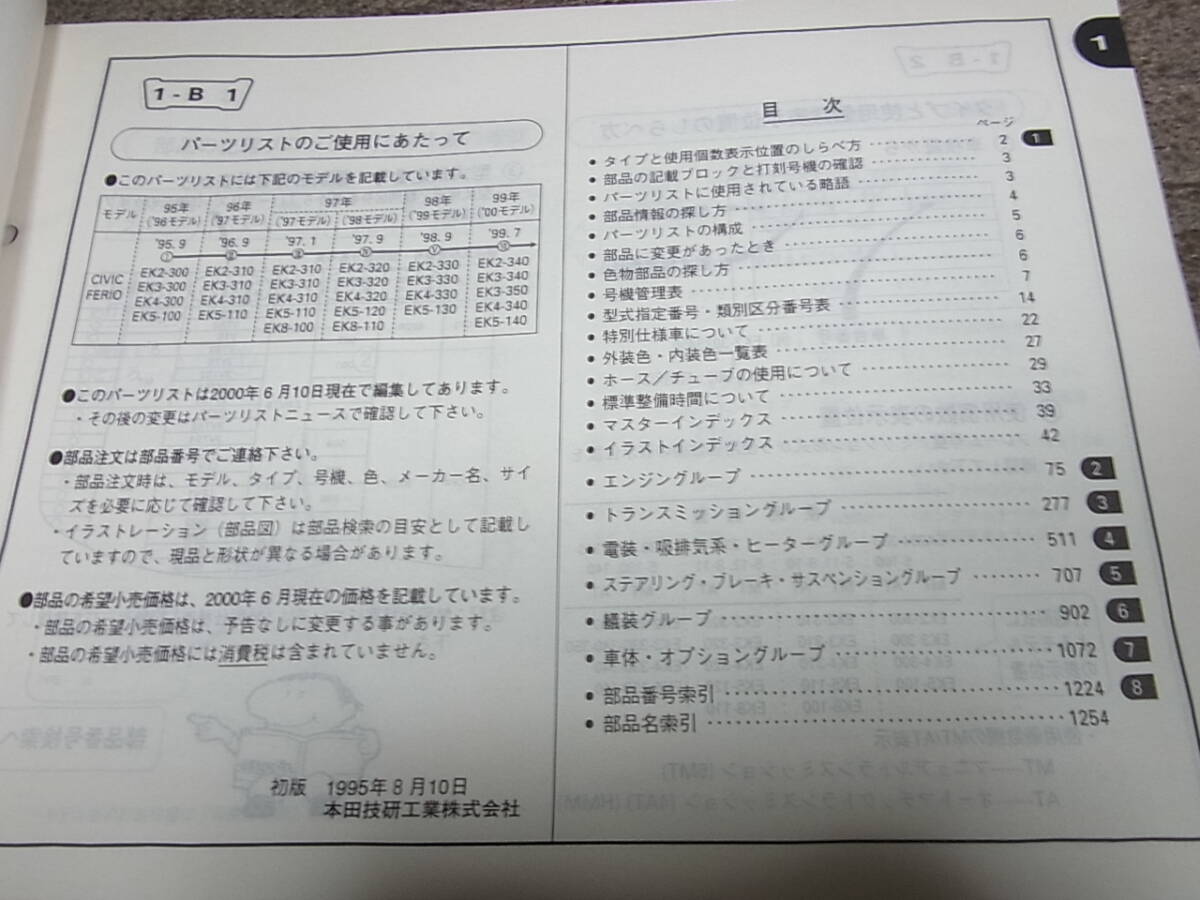 1
1-B 1
パーツリストのご使用にあたって
●このパーツリストには下記のモデルを記載しています。
モデル 95年 96年 97年 98年 99年
('96モデル) ('97モデル) ('97モデル) ('98モデル) ('99モデル) ('00モデル)
CIVIC FERIO
'95. 9 '96. 9 '97. 1 '97. 9 '98. 9 '99. 7
EK2-300 EK2-310 EK2-310 EK2-320 EK2-330 EK2-340
EK3-300 EK3-310 EK3-310 EK3-320 EK3-330 EK3-340
EK4-300 EK4-310 EK4-310 EK4-320 EK4-330 EK3-350
EK5-100 EK5-110 EK5-110 EK5-120 EK5-130 EK4-340
EK8-100 EK8-110 EK5-140
●このパーツリストは2000年6月10日現在で編集してあります。
・その後の変更はパーツリストニュースで確認して下さい。
●部品注文は部品番号でご連絡下さい。
・部品注文時は、モデル、タイプ、号機、色、メーカー名、サイ
ズを必要に応じて確認して下さい。
・イラストレーション（部品図）は部品検索の目安として記載し
ていますので、現品と形状が異なる場合があります。
●部品の希望小売価格は、2000年6月現在の価格を記載しています。
・部品の希望小売価格は、予告なしに変更する事があります。
・部品の希望小売価格には消費税は含まれていません。
初版 1995年8月10日
本田技研工業株式会社
目 次
ページ
● タイプと使用個数表示位置のしらべ方 2 1
● 部品の記載ブロックと打刻号機の確認 3
● パーツリストに使用されている略語 3
● 部品情報の探し方 4
● パーツリストの構成 5
● 部品に変更があったとき 6
● 色物部品の探し方 6
● 号機管理表 7
● 型式指定番号・類別区分番号表 14
● 特別仕様車について 22
● 外装色・内装色一覧表 27
● ホース／チューブの使用について 29
● 標準整備時間について 33
● マスターインデックス 39
● イラストインデックス 42
● エンジングループ 75 2
● トランスミッショングループ 277 3
● 電装・吸排気系・ヒーターグループ 511 4
● ステアリング・ブレーキ・サスペンショングループ 707 5
● 艤装グループ 902 6
● 車体・オプショングループ 1072 7
● 部品番号索引 1224 8
● 部品名索引 1254